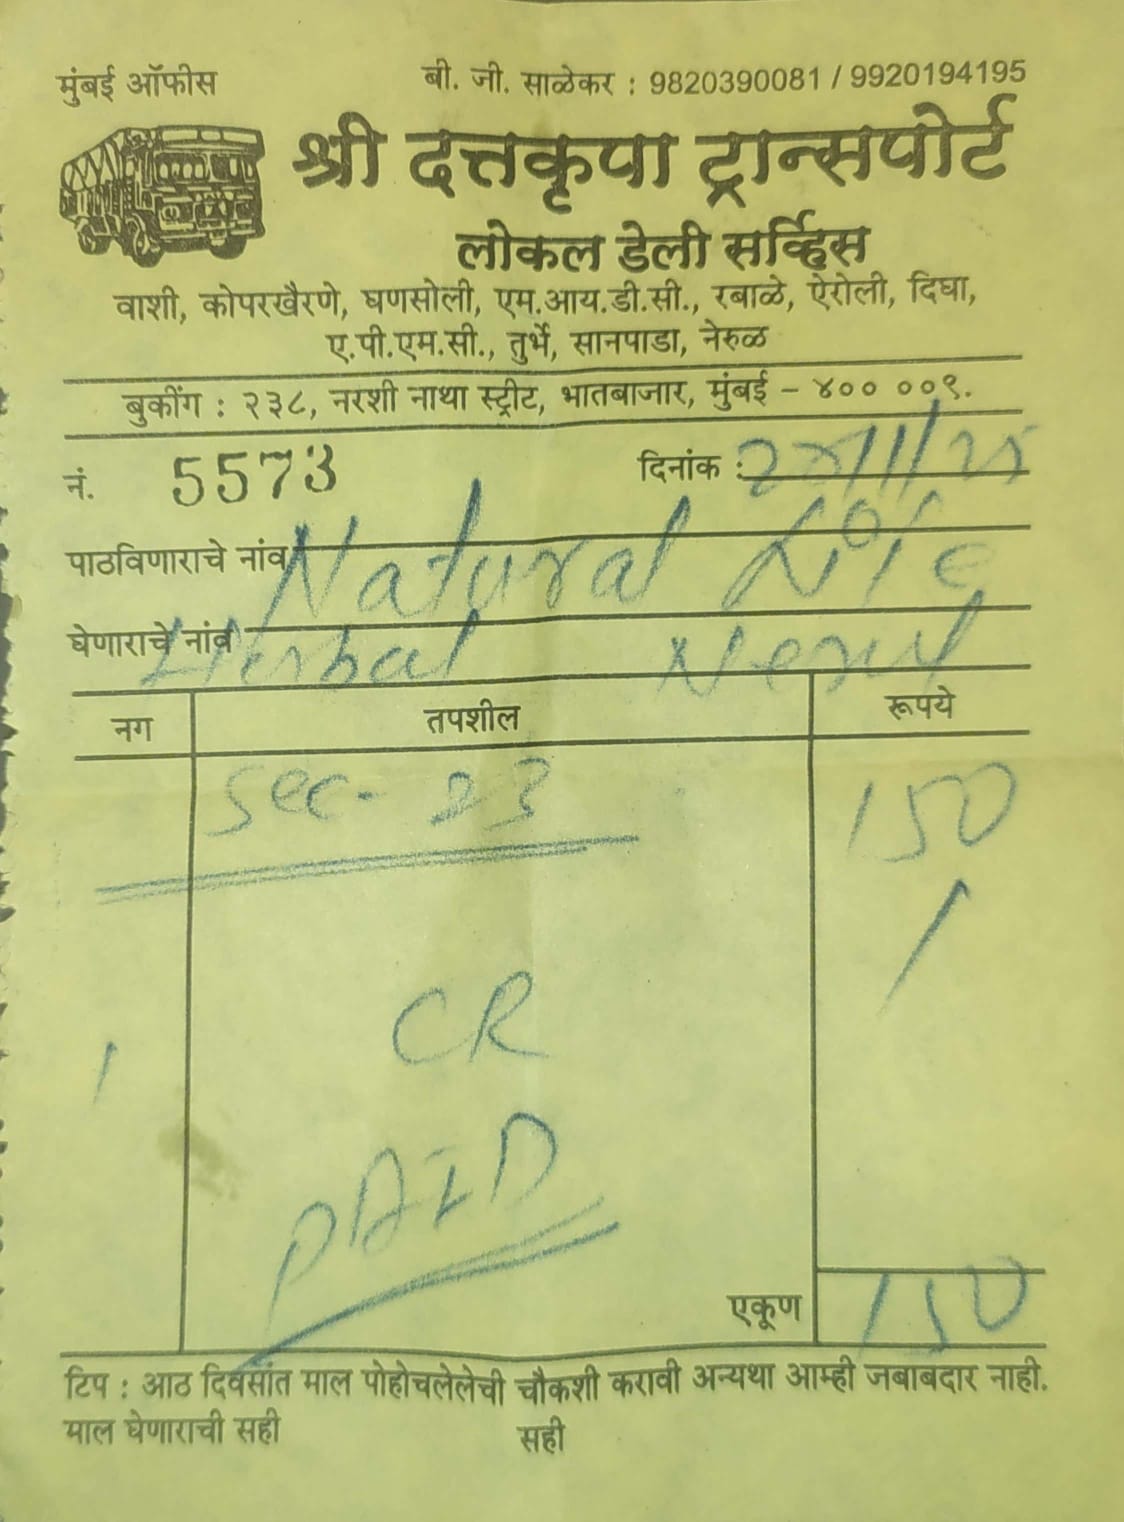 मुंबई ऑफीस
बी. जी. साळेकर : 9820390081 / 9920194195
श्री दत्तकृपा ट्रान्सपोर्ट
लोकल डेली सर्व्हिस
वाशी, कोपरखैरणे, घणसोली, एम.आय.डी.सी., रबाळे, ऐरोली, दिघा,
ए.पी.एम.सी., तुर्भे, सानपाडा, नेरुळ
बुकींग : २३८, नरशी नाथा स्ट्रीट, भातबाजार, मुंबई – ४०० ००९.
नं. 5573 दिनांक :
पाठविणाराचे नांव Natural
घेणाराचे नांव Herbal Nerul
नग तपशील रूपये
Sec- 23 150
/
CR
1
PAID
एकूण 150
टिप : आठ दिवसांत माल पोहोचलेलेची चौकशी करावी अन्यथा आम्ही जबाबदार नाही.
माल घेणाराची सही सही